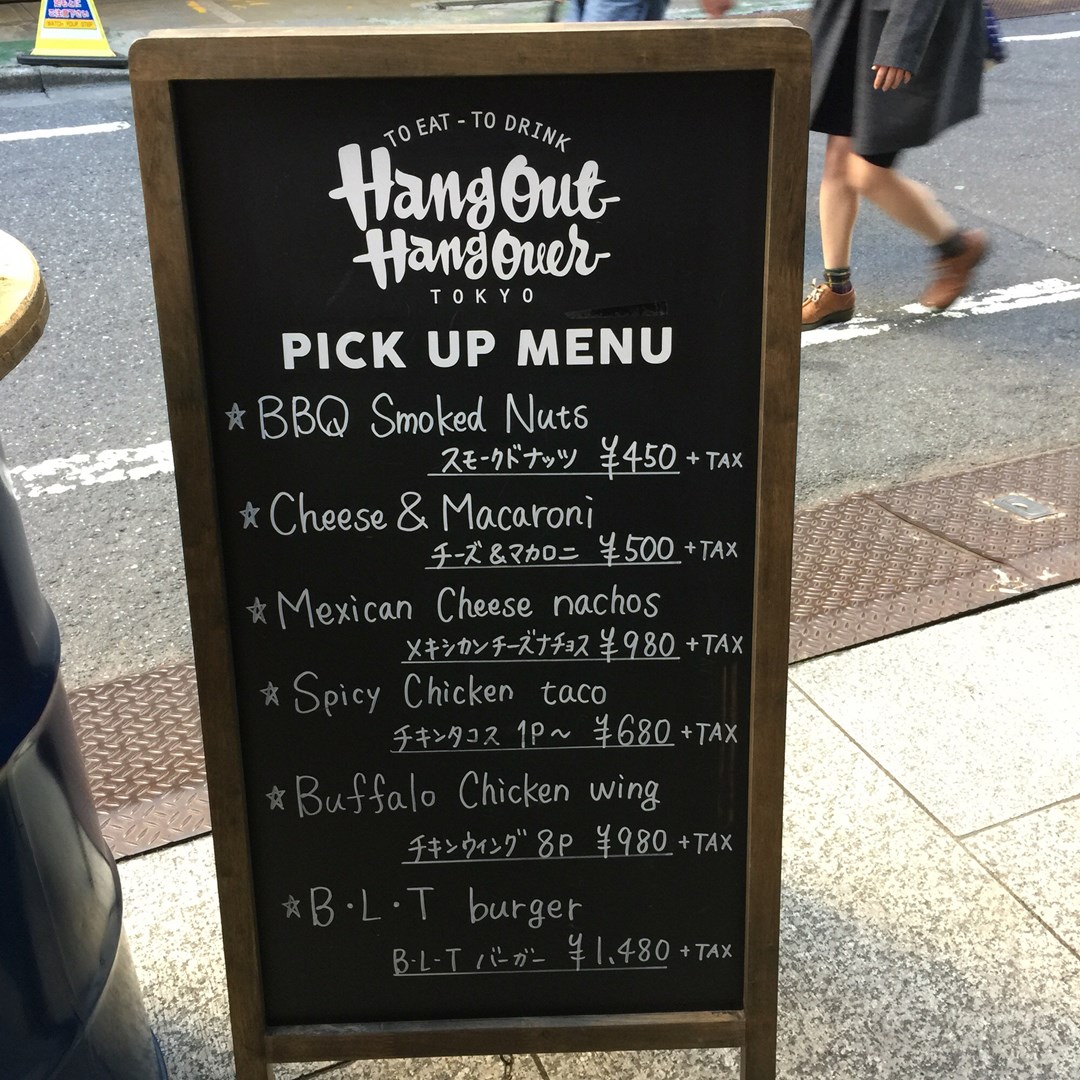 TO EAT - TO DRINK
Hang Out
Hang Over
TOKYO
PICK UP MENU
☆ BBQ Smoked Nuts
スモークドナッツ ¥450 + TAX
☆ Cheese & Macaroni
チーズ&マカロニ ¥500 + TAX
☆ Mexican Cheese nachos
メキシカンチーズナチョス ¥980 + TAX
☆ Spicy Chicken taco
チキンタコス 1P〜 ¥680 + TAX
☆ Buffalo Chicken wing
チキンウィング 8P ¥980 + TAX
☆ B・L・T burger
B-L-T バーガー ¥1,480 + TAX